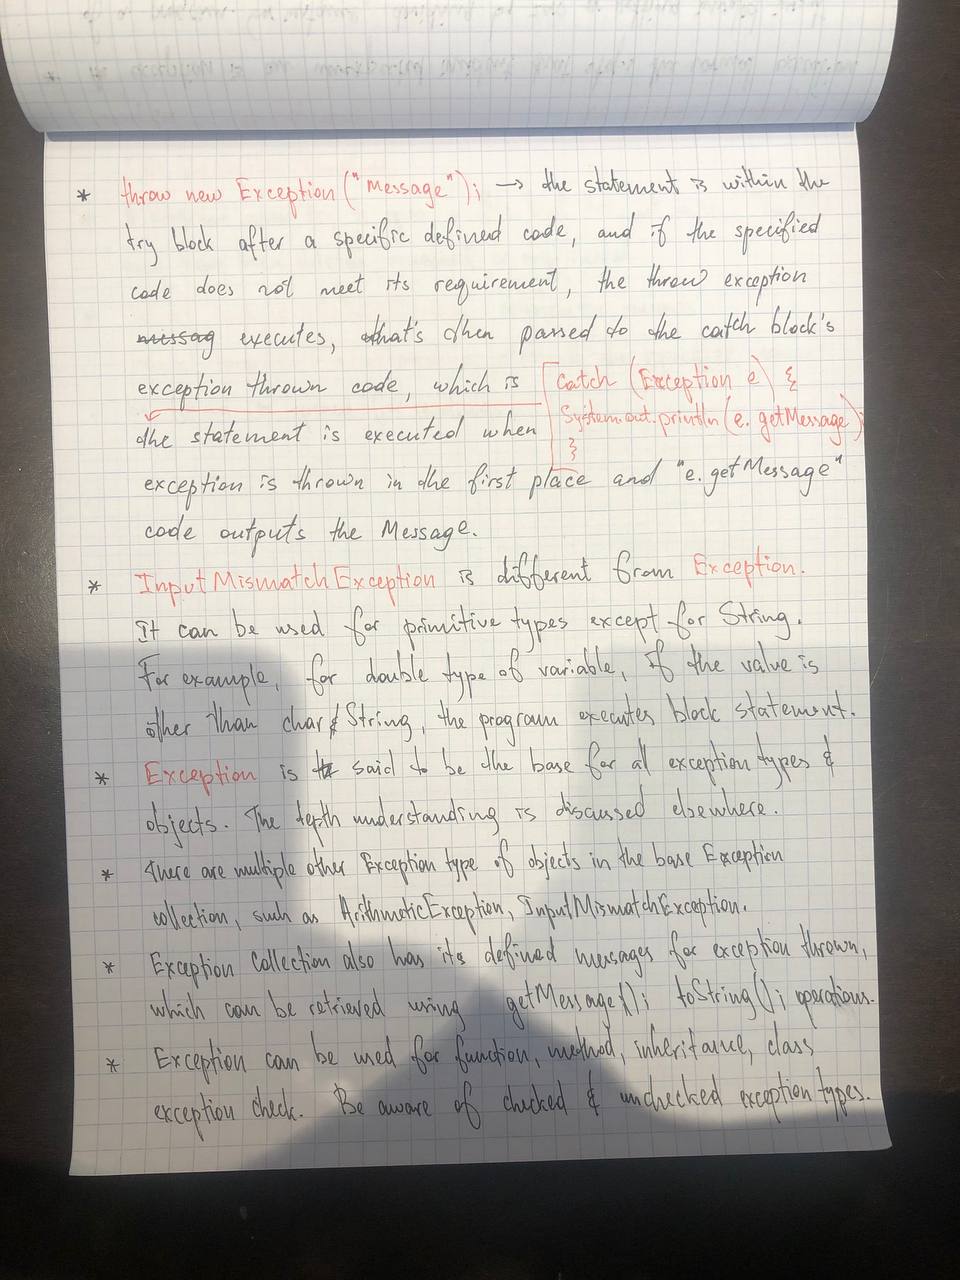 * throw new Exception("Message"); → the statement is within the
try block after a specific defined code, and if the specified
code does not meet its requirement, the throw exception
messag executes, that's then passed to the catch block's
exception thrown code, which is
catch (Exception e) {
System.out.println(e.getMessage);
}
the statement is executed when
exception is thrown in the first place and "e.getMessage"
code outputs the Message.
* InputMismatchException is different from Exception.
It can be used for primitive types except for String.
For example, for double type of variable, if the value is
other than char & String, the program executes block statement.
* Exception is said to be the base for all exception types &
objects. The depth understanding is discussed elsewhere.
* There are multiple other Exception type of objects in the base Exception
collection, such as ArithmeticException, InputMismatchException.
* Exception Collection also has its defined messages for exception thrown,
which can be retrieved using getMessage(); toString(); operations.
* Exception can be used for function, method, inheritance, class
exception check. Be aware of checked & unchecked exception types.